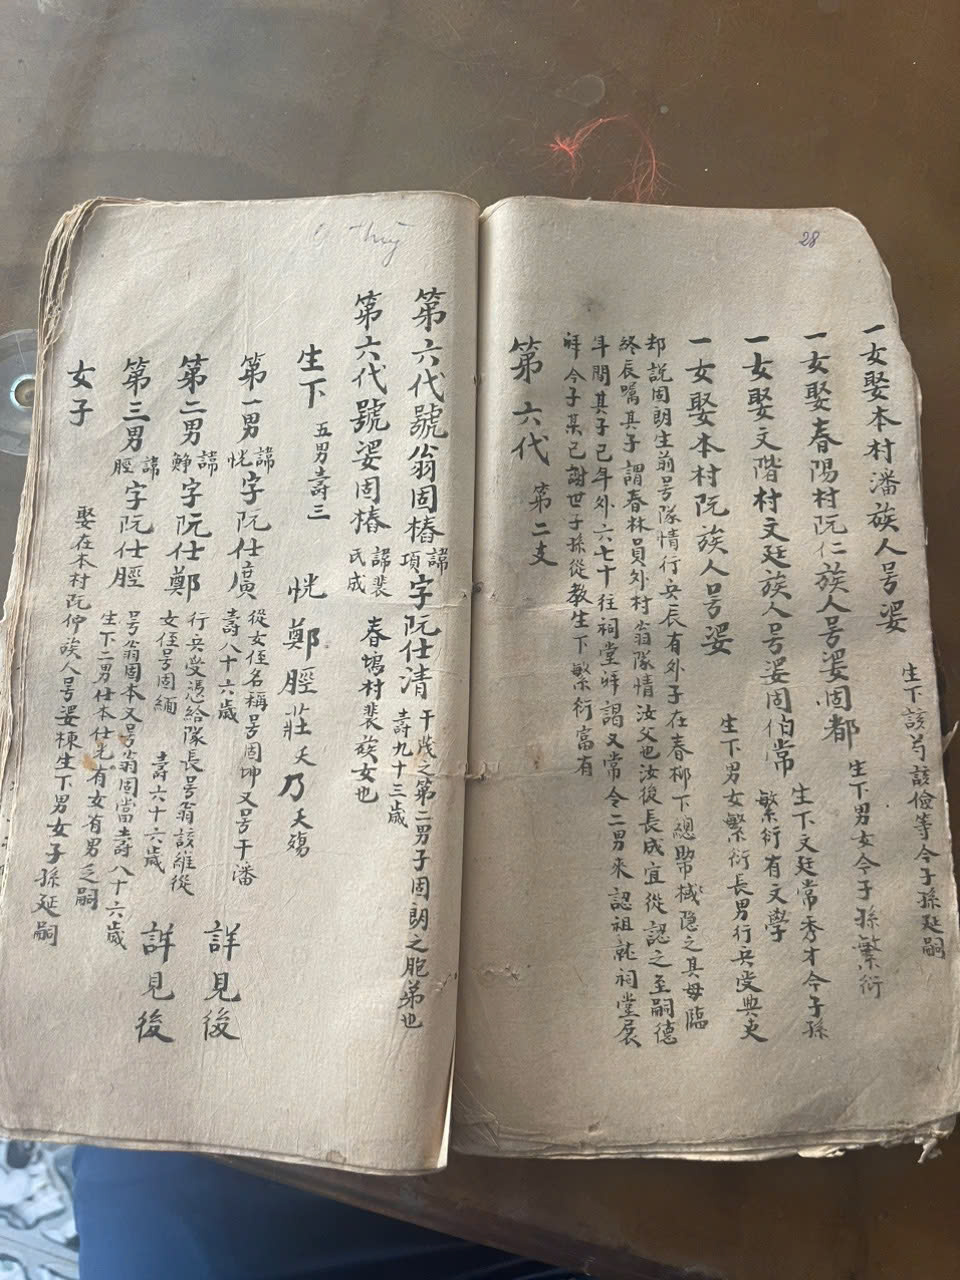 28
一女娶本村潘族人号婆 生下該芎該儉等今子孫延嗣
一女娶春陽村阮仁族人号婆固都 生下男女今子孫繁衍
一女娶文階村文廷族人号婆固伯常 生下文廷常秀才今子孫繁衍有文學
一女娶本村阮族人号婆 生下男女繁衍長男行兵受典吏
却説固朗生前号隊情行兵辰有外子在春柳下總幣械隐之其母臨
終辰嘱其子謂春林員外村翁隊情汝父也汝後長成宜從認之至嗣德
年間其子已年外六七十往祠堂拜謁又常令二男來認祖就祠堂展
拜今子某已謝世子孫從教生下繁衍富有
第六代 第二支
G Thuỳ
第六代號翁固樁 諱項 字阮仕清 壽九十三歲 干茂之第二男子固朗之胞弟也
第六代號婆固樁 諱裴氏成 春塢村裴族女也
生下 五男壽三 恍 鄭 脛 莊夭 乃夭殤
第一男 諱恍 字阮仕廣 從女侄名稱号固坤又号干潘 壽八十六歲 詳見後
第二男 諱 字阮仕鄭 行兵受憑給隊長号翁該維從女侄号固緬 壽六十六歲 詳見後
第三男 諱脛 字阮仕脛 号翁固本又号翁固當壽八十六歲 生下二男仕本仕 有女有男乏嗣
女子 娶在本村阮仲族人号婆棟生下男女子孫延嗣